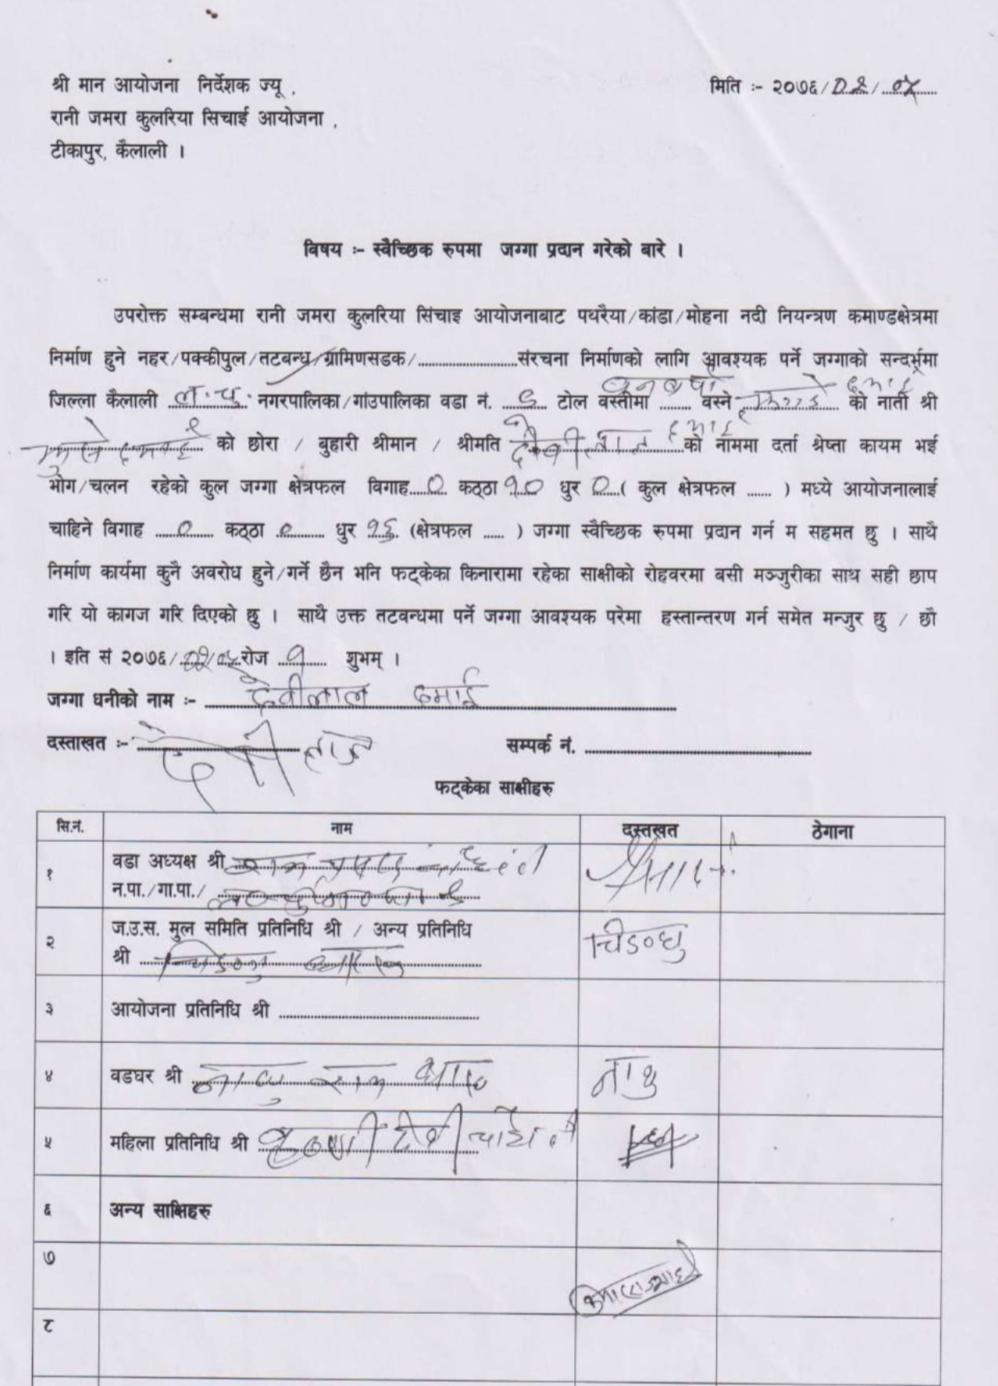 श्री मान आयोजना निर्देशक ज्यू ,
मिति :- २०७६/०२/०५
रानी जमरा कुलरिया सिचाई आयोजना ,
टीकापुर, कैलाली ।
विषय :- स्वैच्छिक रुपमा जग्गा प्रदान गरेको बारे ।
उपरोक्त सम्बन्धमा रानी जमरा कुलरिया सिंचाइ आयोजनाबाट पथरैया/कांडा/मोहना नदी नियन्त्रण कमाण्डक्षेत्रमा
निर्माण हुने नहर/पक्कीपुल/तटबन्ध/ग्रामिणसडक/....................संरचना निर्माणको लागि आवश्यक पर्ने जग्गाको सन्दर्भमा
जिल्ला कैलाली ल.चु. नगरपालिका/गांउपालिका वडा नं. ६ टोल वस्तीमा ....... वस्ने दमाई को नाती श्री
को छोरा / बुहारी श्रीमान / श्रीमति देवीलाल दमाई को नाममा दर्ता श्रेष्ता कायम भई
भोग/चलन रहेको कुल जग्गा क्षेत्रफल विगाह..०.. कठ्ठा १० धुर ०..( कुल क्षेत्रफल ...... ) मध्ये आयोजनालाई
चाहिने विगाह ...०.... कठ्ठा .०...... धुर १६. (क्षेत्रफल ..... ) जग्गा स्वैच्छिक रुपमा प्रदान गर्न म सहमत छु । साथै
निर्माण कार्यमा कुनै अवरोध हुने/गर्ने छैन भनि फट्केका किनारामा रहेका साक्षीको रोहवरमा बसी मञ्जुरीका साथ सही छाप
गरि यो कागज गरि दिएको छु । साथै उक्त तटवन्धमा पर्ने जग्गा आवश्यक परेमा हस्तान्तरण गर्न समेत मन्जुर छु / छौ
। इति सं २०७६/०२/०५ रोज १ शुभम् ।
जग्गा धनीको नाम :- देवीलाल दमाई
दस्ताखत :- देवीलाल
सम्पर्क नं. ........................................
फट्केका साक्षीहरु
सि.नं. नाम दस्तखत ठेगाना
१ वडा अध्यक्ष श्री
न.पा./गा.पा./
२ ज.उ.स. मुल समिति प्रतिनिधि श्री / अन्य प्रतिनिधि
श्री
३ आयोजना प्रतिनिधि श्री ....................................
४ वडघर श्री
५ महिला प्रतिनिधि श्री
६ अन्य साक्षिहरु
७
८